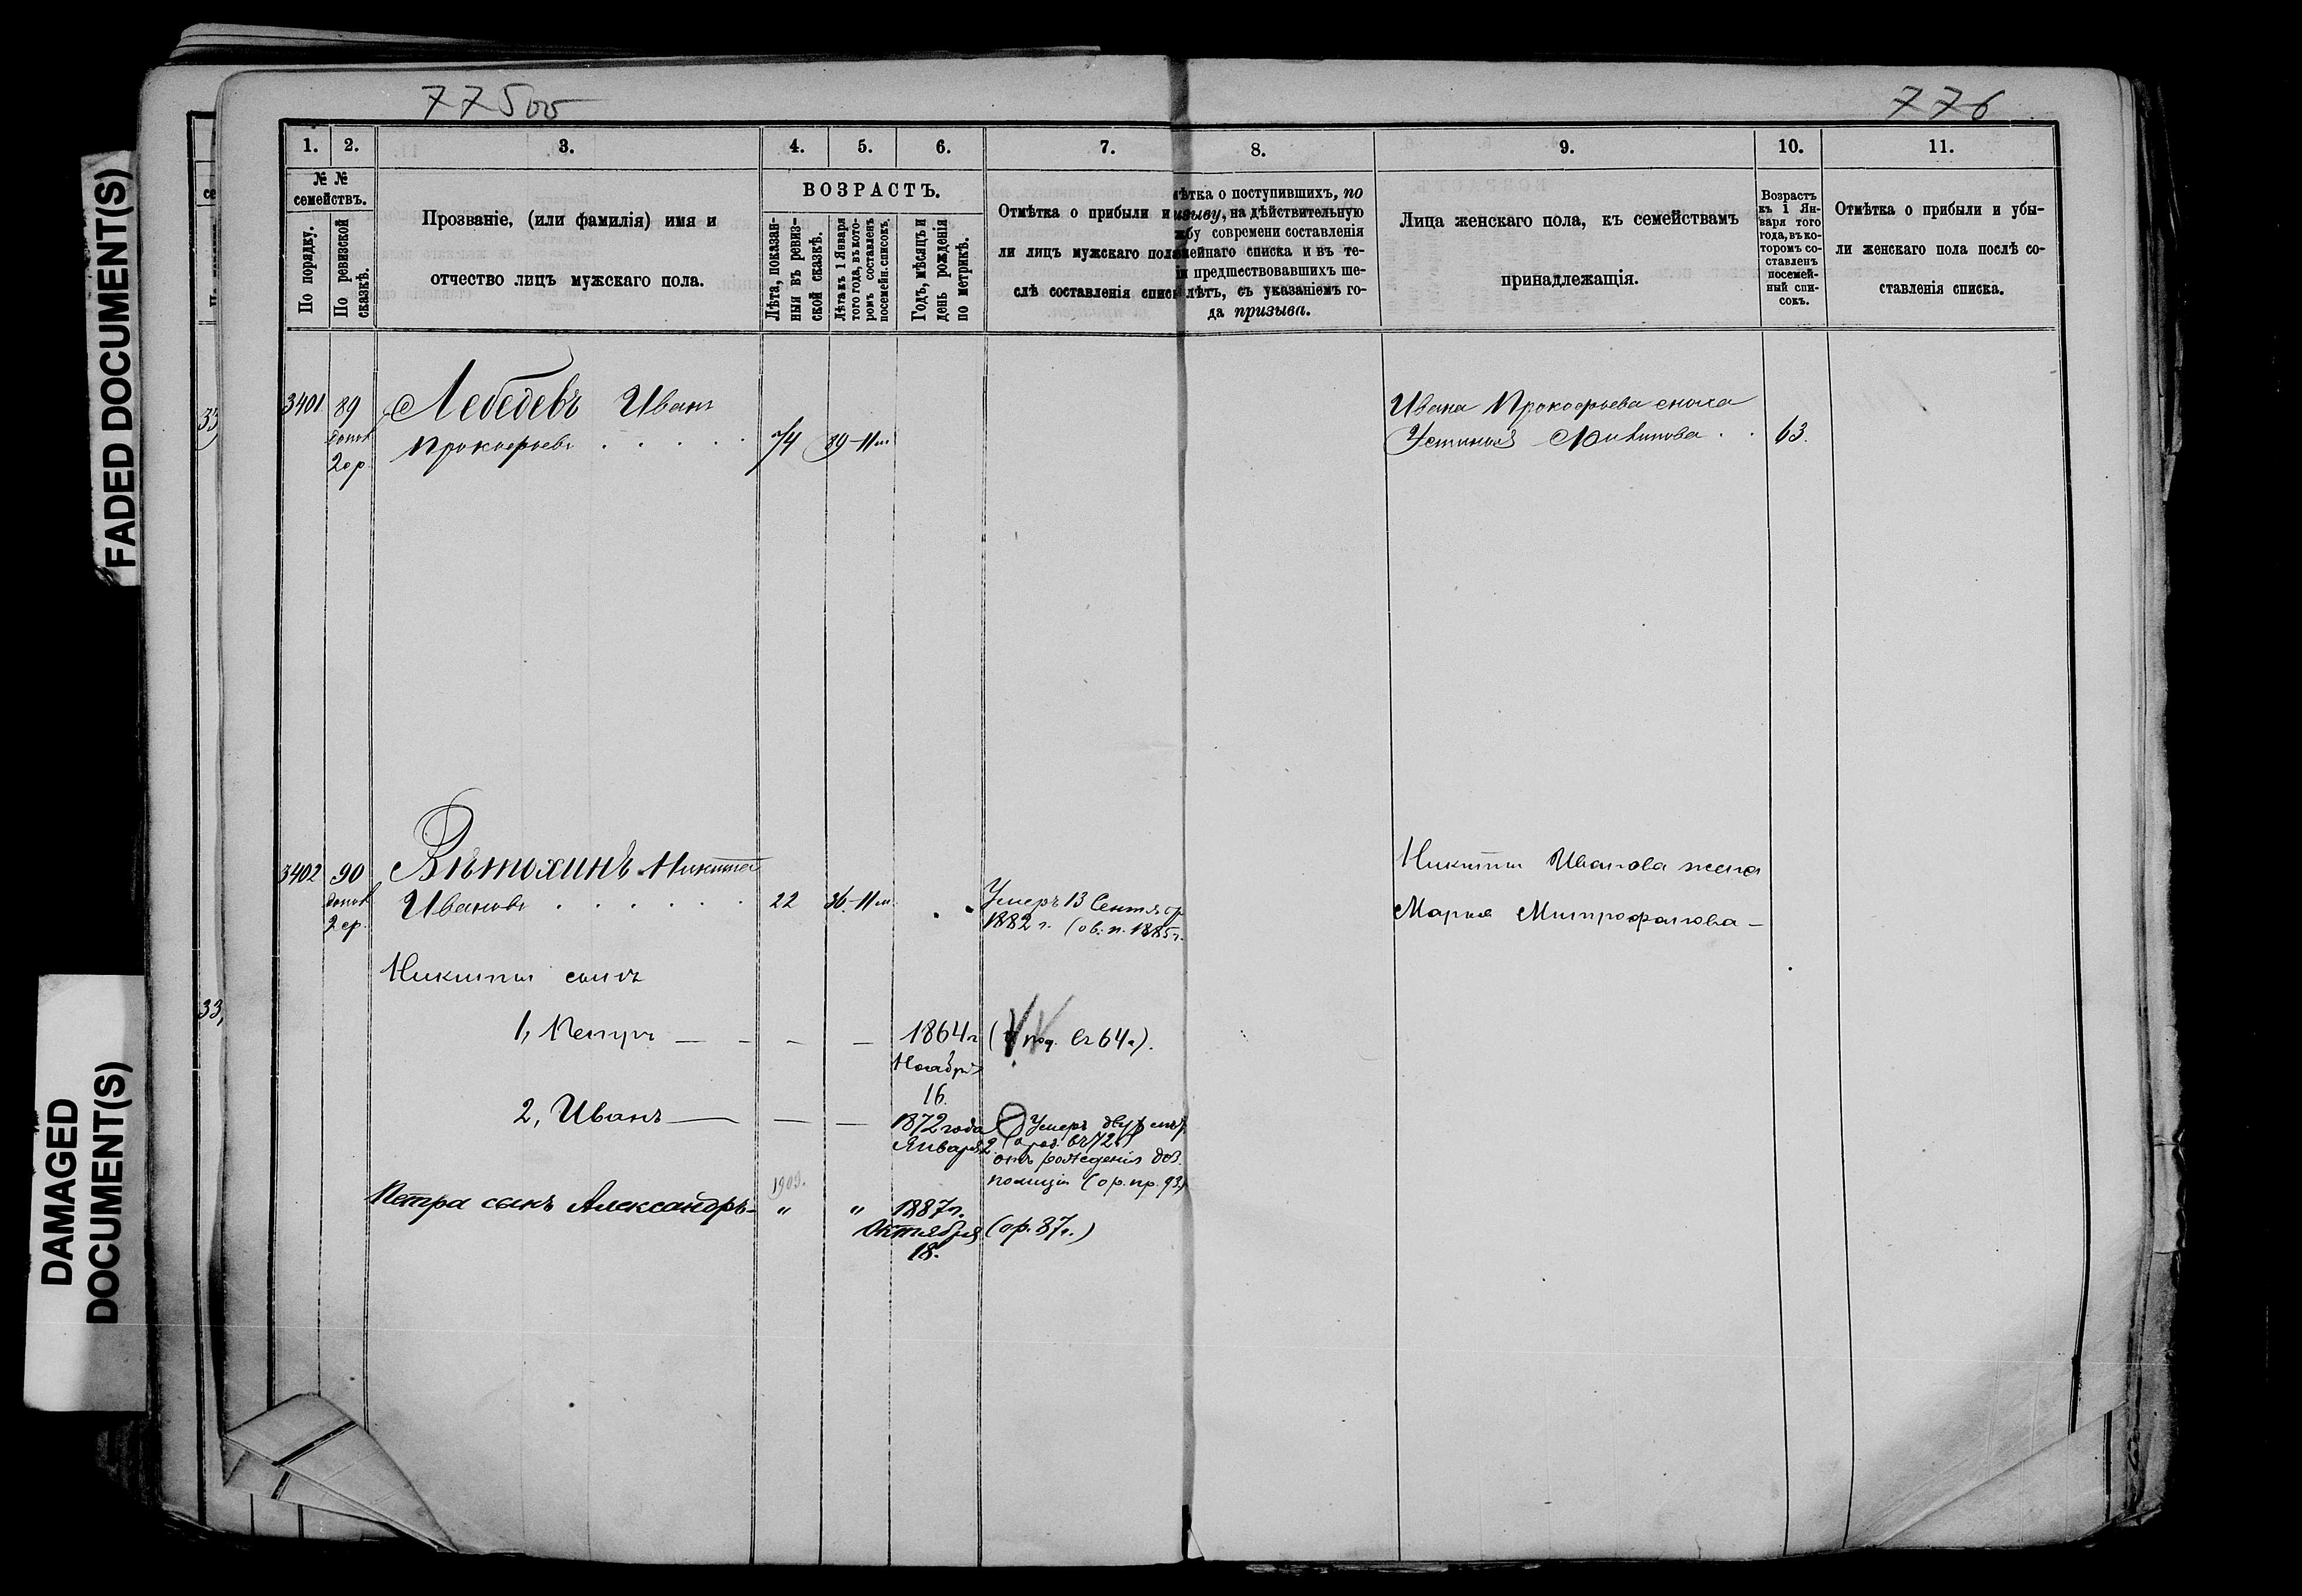 77500
776
1.
2.
3.
4.
5.
6.
7.
8.
9.
10.
11.
№ №
семействъ.
По порядку.
По ревизской
сказкѣ.
Прозваніе, (или фамилія) имя и
отчество лицъ мужскаго пола.
ВОЗРАСТЪ.
Лѣта, показан-
ныя въ ревиз-
ской сказкѣ.
Лѣта къ 1 Января
того года, въ кото-
ромъ составленъ
посемейн. списокъ.
Годъ, мѣсяцъ и
день рожденія
по метрикѣ.
Отмѣтка о прибыли и
ли лицъ мужскаго пола
слѣ составленія спис
ѣтка о поступившихъ, по
изыву, на дѣйствительную
жбу современи составленія
мейнаго списка и въ те-
и предшествовавшихъ ше-
лѣтъ, съ указаніемъ го-
да призыва.
Лица женскаго пола, къ семействамъ
принадлежащія.
Возрастъ
къ 1 Ян-
варя того
года, въ ко-
торомъ со-
ставленъ
посемей-
ный спи-
сокъ.
Отмѣтка о прибыли и убы-
ли женскаго пола послѣ со-
ставленія списка.
3401 89 Лебедевъ Иванъ
допол
2 ср. Прокофьевъ 74 89-11м.
Ивана Прокофьева сноха
Устинья 63.
3402 90 Вѣтохинъ Никита
допол
2 ср. Ивановъ 22 36-11м.
Умеръ 13 Сентябр
1882 г. (об. п. 1885 г.
Никиты Иванова жена
Марья Митрофанова —
Никиты сынъ
1, Петръ — — — — 1864 г.
Ноября
16.
64 г.).
2, Иванъ — — — 1872 года
Января 2
Умеръ двух
72
отъ рожденія
полиціи (ор. пр. 93)
1909.
Петра сынъ Александръ — " " 1887 г.
Октября
18.
(ор. 87 г.)
33
33,
FADED DOCUMENT(S)
DAMAGED
DOCUMENT(S)